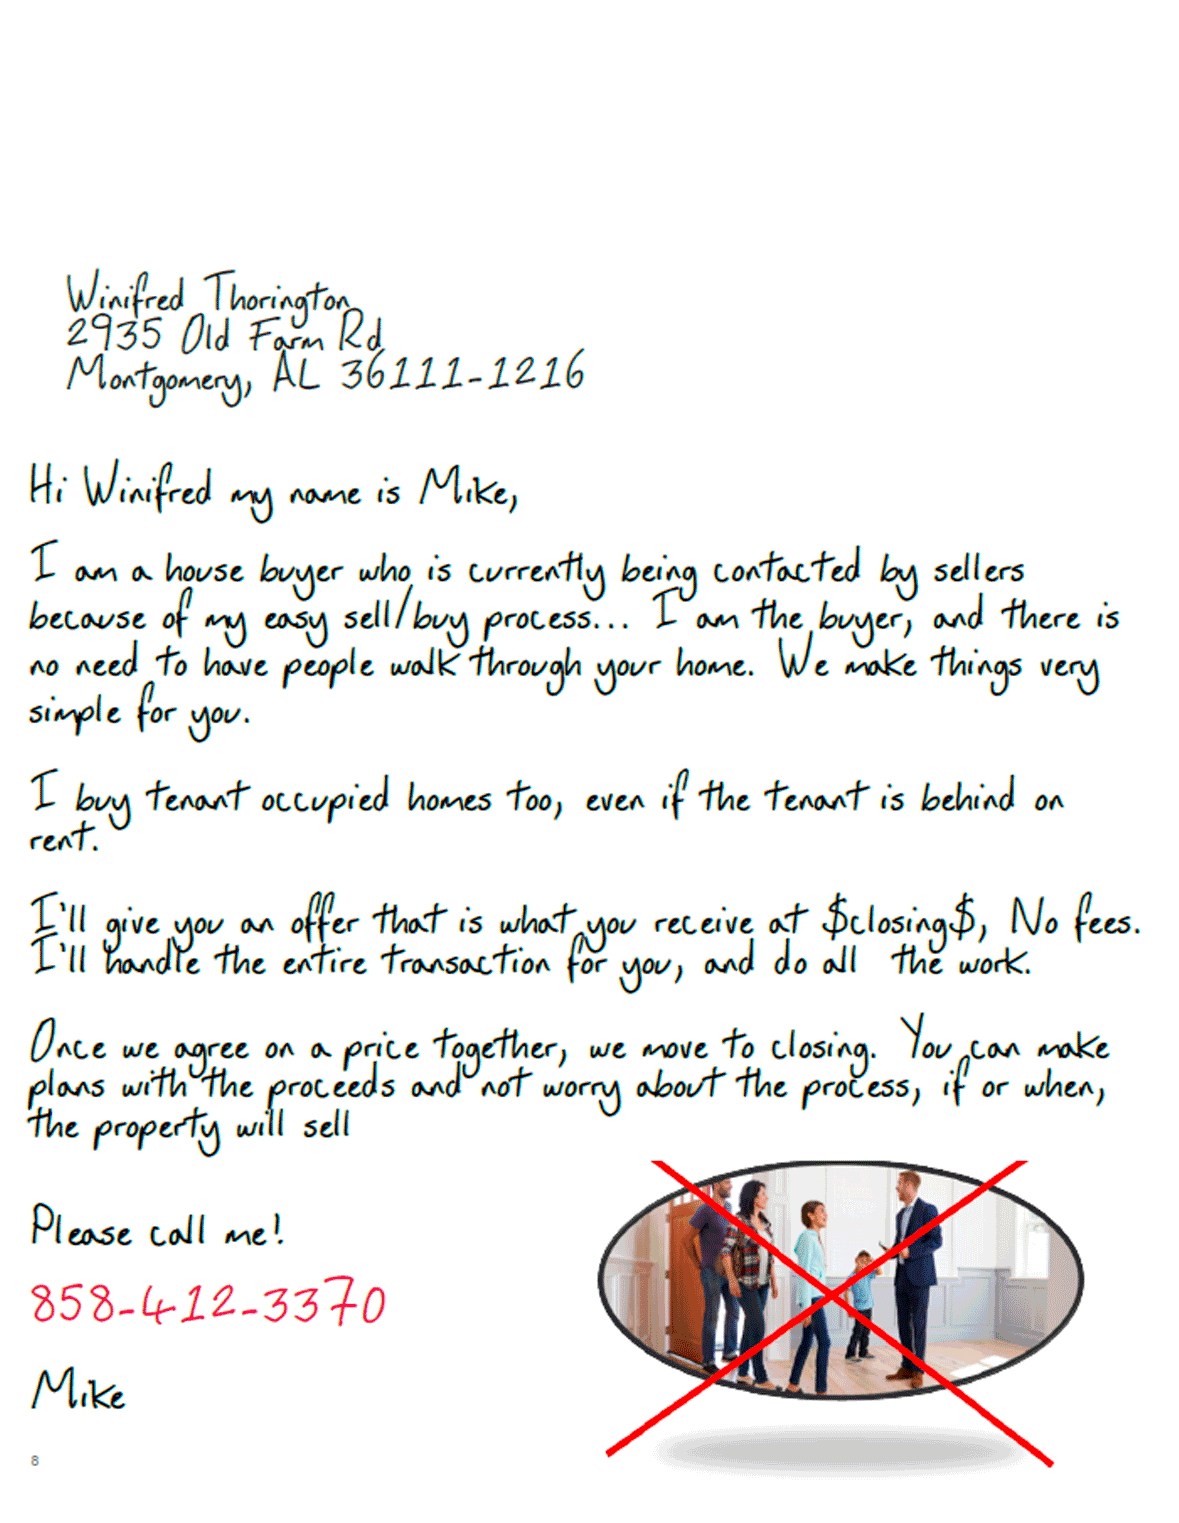 Winifred Thorington
2935 Old Farm Rd
Montgomery, AL 36111-1216
Hi Winifred my name is Mike,
I am a house buyer who is currently being contacted by sellers
because of my easy sell/buy process... I am the buyer, and there is
no need to have people walk through your home. We make things very
simple for you.
I buy tenant occupied homes too, even if the tenant is behind on
rent.
I'll give you an offer that is what you receive at $closing$, No fees.
I'll handle the entire transaction for you, and do all the work.
Once we agree on a price together, we move to closing. You can make
plans with the proceeds and not worry about the process, if or when,
the property will sell
Please call me!
858-412-3370
Mike
8